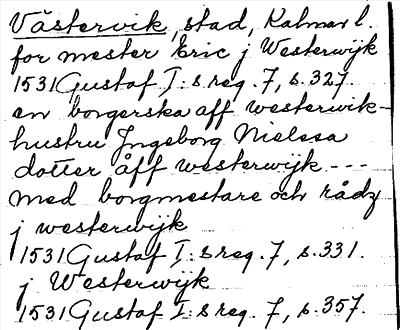 Västervik, stad, Kalmar l.
for mester Eric j Westerwijk
1531 Gustaf I:s reg. 7, s. 327.
en borgerska aff westerwik-
hustru Jngeborg Nielssa
dotter åff westerwijk ---
med borgmestare och rådz
j westerwijk
1531 Gustaf I:s reg. 7, s. 331.
j Westerwijk
1531 Gustaf I:s reg. 7, s. 357.